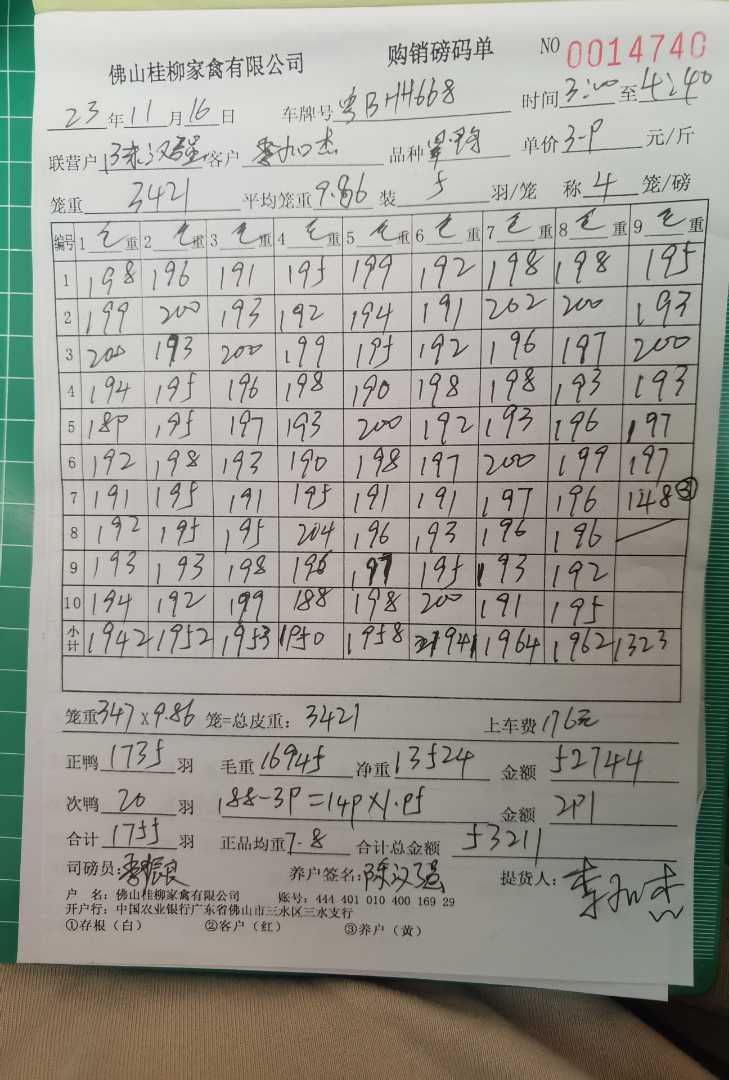 佛山桂柳家禽有限公司 购销磅码单 NO 0014740
23年11月16日 车牌号 粤BHH668 时间3:00至4:40
联营户 陈汉强 客户 李加杰 品种 单价3.9元/斤
笼重 3421 平均笼重9.86 装 5 羽/笼 称 4 笼/磅
编号 1 毛重 2 毛重 3 毛重 4 毛重 5 毛重 6 毛重 7 毛重 8 毛重 9 毛重
1 198 196 191 195 199 192 198 198 195
2 199 200 193 192 194 191 202 200 193
3 200 193 200 199 195 192 196 197 200
4 194 195 196 198 190 198 198 193 193
5 189 195 197 193 200 192 193 196 197
6 192 198 193 190 198 197 200 199 197
7 191 195 191 195 191 191 197 196 148③
8 192 195 195 204 196 193 196 196
9 193 193 198 196 197 195 193 192
10 194 192 199 188 198 200 191 195
小计 1942 1952 1953 1950 1958 1941 1964 1962 1323
笼重347×9.86 笼=总皮重：3421 上车费176元
正鸭 1735 羽 毛重 16945 净重 13524 金额 52744
次鸭 20 羽 188-39=149×1.95 金额 291
合计 1755 羽 正品均重7.8 合计总金额 53211
司磅员：李振良 养户签名：陈汉强 提货人：李加杰
户 名：佛山桂柳家禽有限公司 账号：444 401 010 400 169 29
开户行：中国农业银行广东省佛山市三水区三水支行
①存根（白） ②客户（红） ③养户（黄）